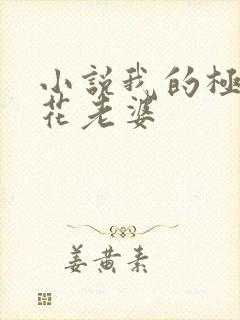 小説我的極
花老婆
姜黄素